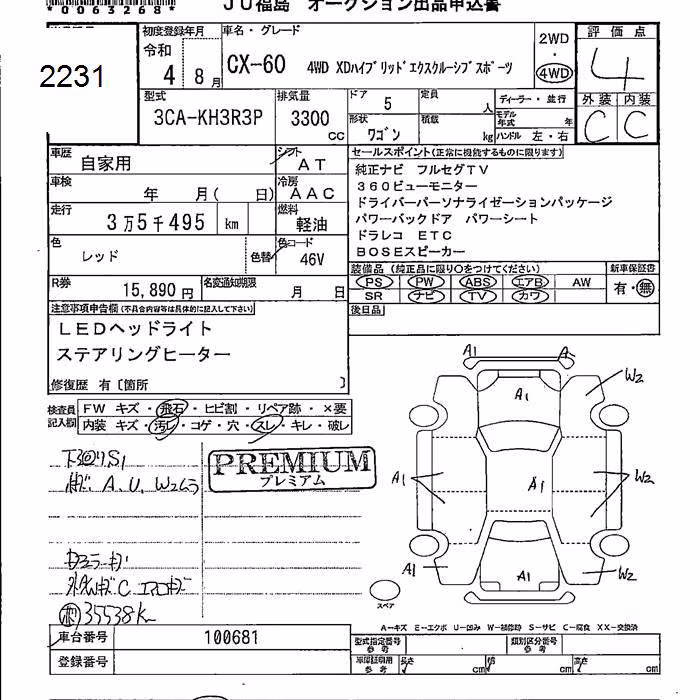 *0063268*
JU福島 オークション出品申込書
2231
初度登録年月
令和
4 8月
車名・グレード
CX-60 4WD XDハイブリッドエクスクルーシブスポーツ
2WD
・
4WD
評価点
4
外装 内装
C C
型式
3CA-KH3R3P
排気量
3300
cc
ドア 5
定員 人
ディーラー・並行
形状
ワゴン
積載 kg
モデル年式 年
ハンドル 左・右
車歴
自家用
シフト
AT
車検
年 月( 日)
冷房
AAC
走行
3万5千495 km
燃料
軽油
色
レッド
色替
色コード
46V
R券
15,890円
名変通知期限
月 日
セールスポイント(正常に機能するものに限ります)
純正ナビ フルセグTV
360ビューモニター
ドライバーパーソナライゼーションパッケージ
パワーバックドア パワーシート
ドラレコ ETC
BOSEスピーカー
装備品(純正品に限り○をつけてください)
PS PW ABS エアB AW
SR ナビ TV カワ
新車保証書
有・無
後日品
注意事項申告欄(不具合内容等は具体的に記入して下さい)
LEDヘッドライト
ステアリングヒーター
修復歴 有〔箇所 〕
検査員記入欄
FW キズ・飛石・ヒビ割・リペア跡・×要
内装 キズ・汚レ・コゲ・穴・スレ・キレ・破レ
下回りS1
A、U、W2ムラ
PREMIUM
プレミアム
35538K
A1 A
A1
W2
A1
A1
W2
A1
A1
W2
スペア
A-キズ E-エクボ U-凹み W-補修跡 S-サビ C-腐食 XX-交換済
車台番号 100681
登録番号
型式指定番号
参考
類別区分番号
参考
車庫証明用
参考
長さ cm
幅 cm
高さ cm